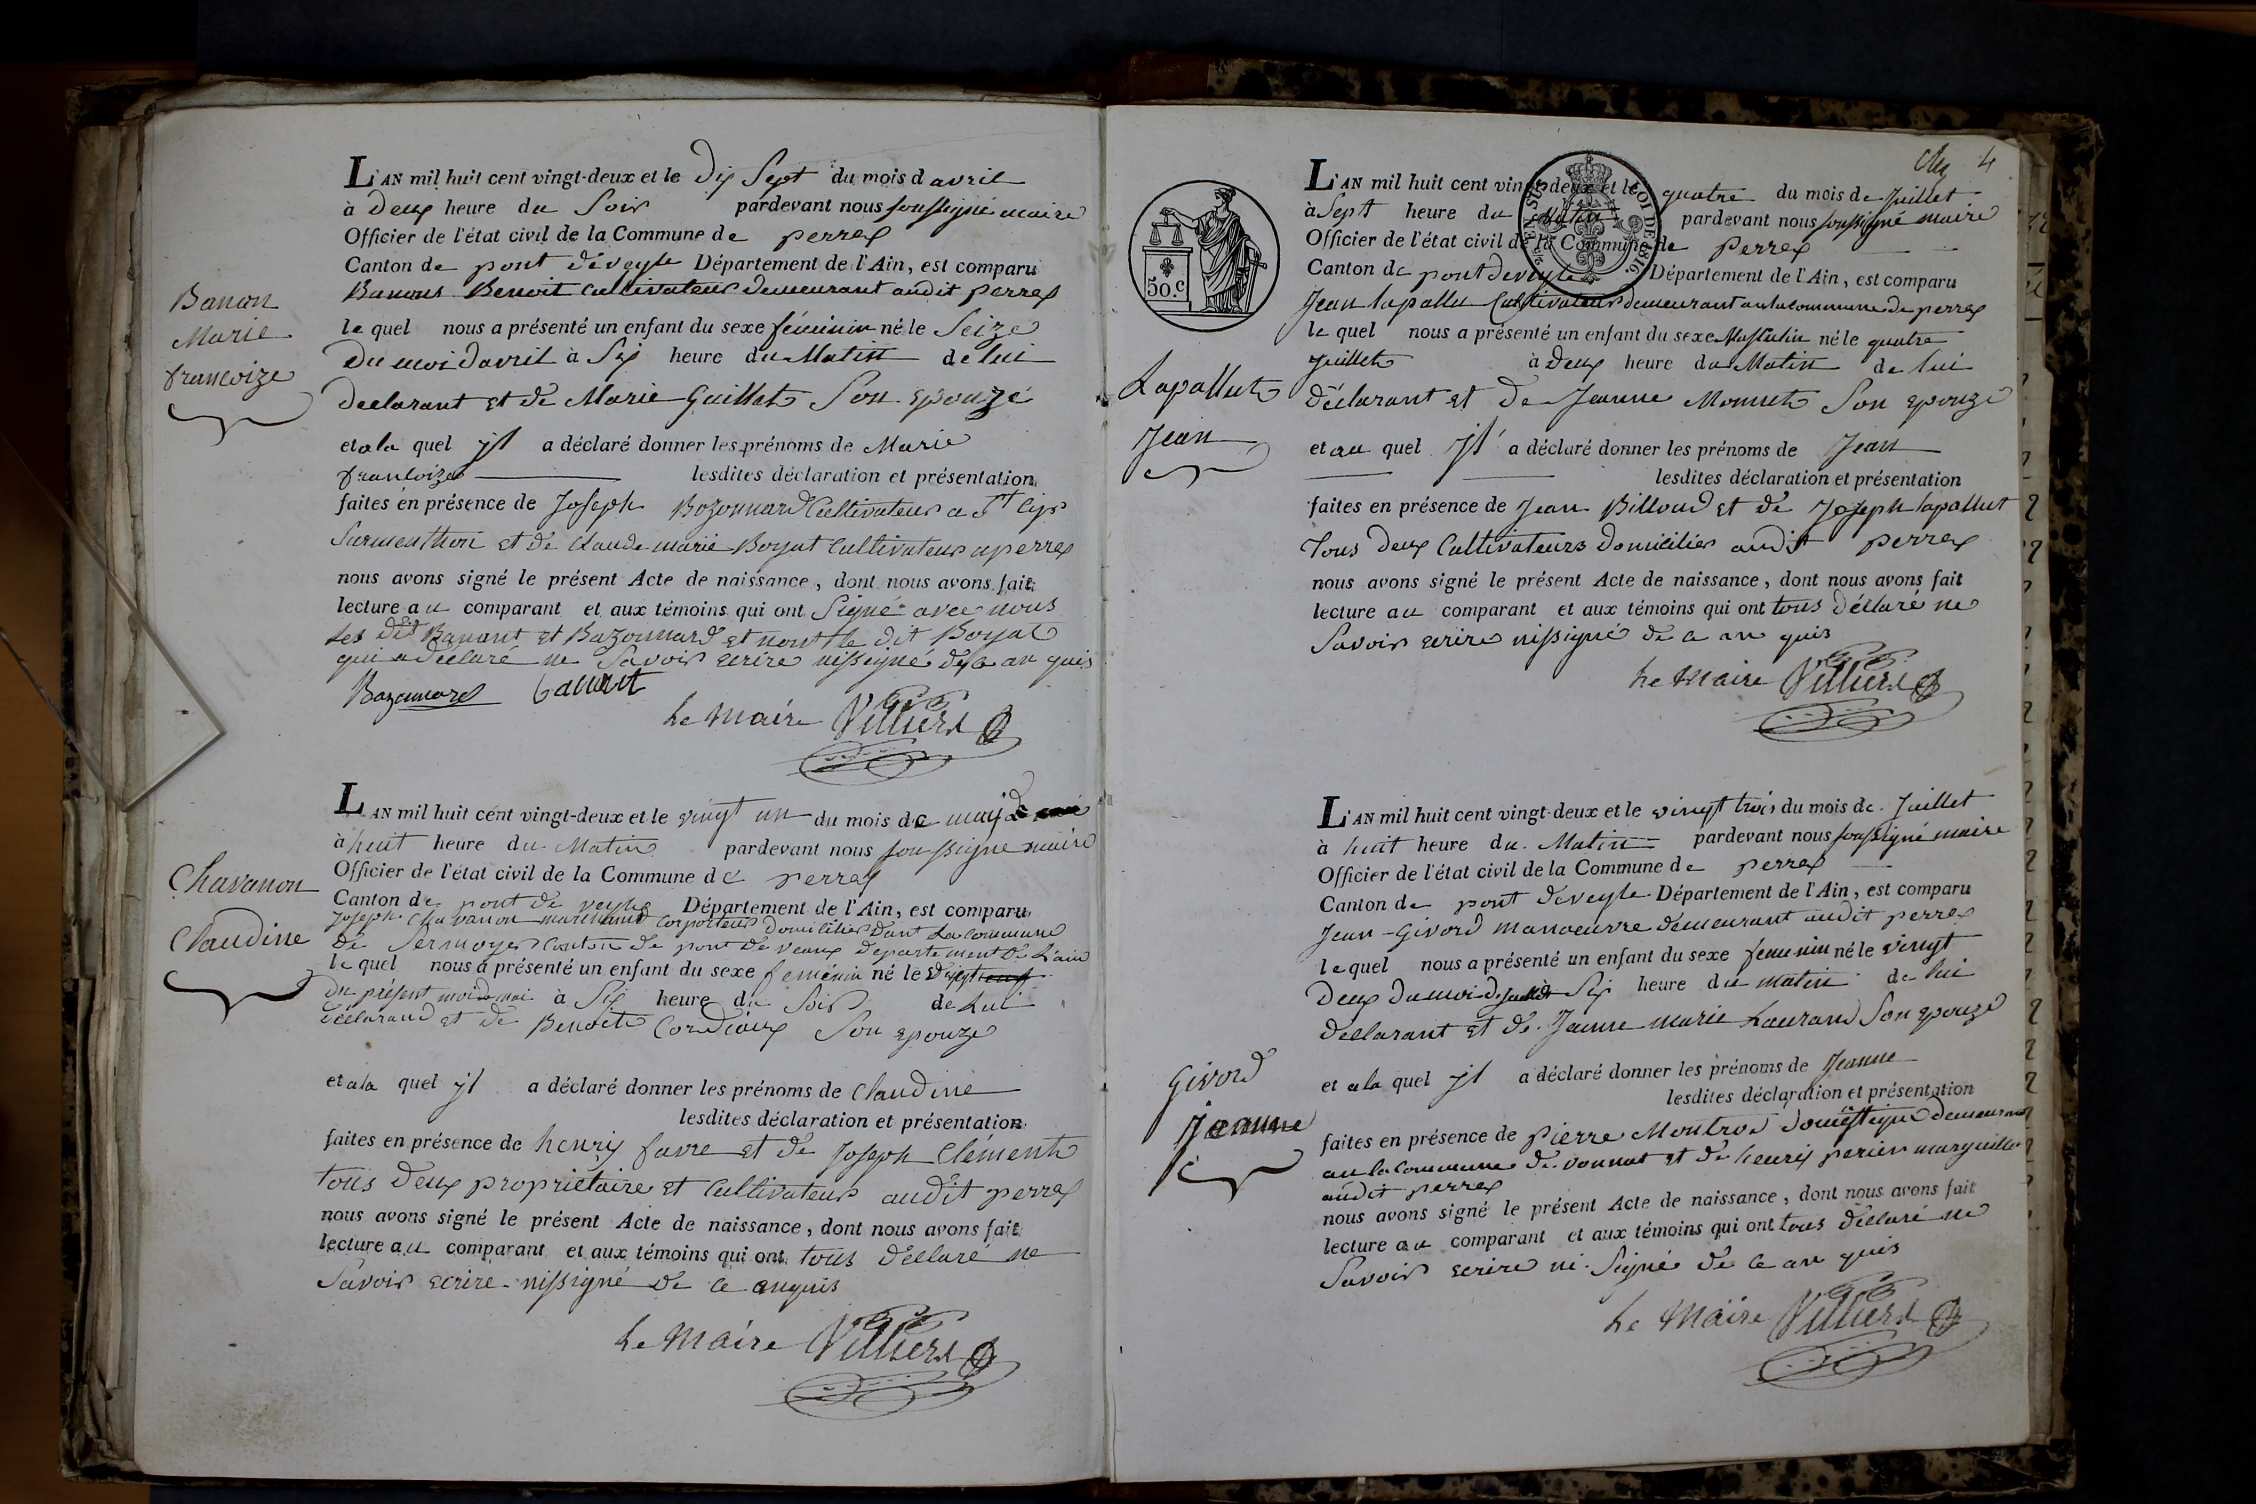 Banon
Marie
francoize
L'AN mil huit cent vingt-deux et le dix Sept du mois d avril
à deux heure du Soir pardevant nous soussigné maire
Officier de l'état civil de la Commune de perrex
Canton de pont déveyle Département de l'Ain, est comparu
Banons Benoit Cultivateur demeurant audit perrex
le quel nous a présenté un enfant du sexe féminin né le Seize
du moi davril à Six heure du Matin de lui
declarant et de Marie Guillet Son epouzé
et a la quel jl a déclaré donner les prénoms de Marie
francoize lesdites déclaration et présentation
faites en présence de Joseph Bozonnard Cultivateur a St Cip
Surmenthon et de Claude marie Boyat Cultivateur a perrex
nous avons signé le présent Acte de naissance, dont nous avons fait
lecture au comparant et aux témoins qui ont Signé avec nous
Les dit Banant et Bazonnard et non le dit Boyat
qui a déclaré ne Savoir ecrire nissigné de ce an quis
Bozonnard
Le Maire Villierd
Chavanon
Claudine
L'AN mil huit cent vingt-deux et le vingt un du mois de mai
à huit heure du Matin pardevant nous soussigne maire
Officier de l'état civil de la Commune de perrex
Canton de pont de veyle Département de l'Ain, est comparu
Joseph Chavanon marchand Corporteur domicilier dant La commune
de Sermoyer Canton de pont de veaux departement de L'ain
le quel nous a présenté un enfant du sexe feménin né le
du présent moi de mai à Six heure du Soir de Lui
déclarand et de Benoite Cordiaux Son epouze
et a la quel jl a déclaré donner les prénoms de Claudine
lesdites déclaration et présentation
faites en présence de henry favre et de Joseph Clément
tous deux proprietaire et Cultivateur audit perrex
nous avons signé le présent Acte de naissance, dont nous avons fait
lecture au comparant et aux témoins qui ont tous déclaré ne
Savoir ecrire nissigné de ce anquis
Le Maire Villierd
4
50.c
EN SUS
LOI DE 1816.
Lapallut
Jean
L'AN mil huit cent vingt-deux et le quatre du mois de Juillet
à Sept heure du Matin pardevant nous soussigné maire
Officier de l'état civil de la Commune de Perrex
Canton de pont deveyle Département de l'Ain, est comparu
Jean lapallu Cultivateur demeurant au la commune de perrex
le quel nous a présenté un enfant du sexe Masculin né le quatre
Juillet à deux heure du Matin de lui
déclarant et de Jeanne Monnet Son epouze
et au quel jl a déclaré donner les prénoms de Jean
lesdites déclaration et présentation
faites en présence de Jean Billoud et de Joseph lapallut
Tous deux Cultivateurs domicilier audit perrex
nous avons signé le présent Acte de naissance, dont nous avons fait
lecture au comparant et aux témoins qui ont tous déclaré ne
Savoir ecrire nissigné de ce an quis
Le Maire Villierd
Givord
Jeanne
L'AN mil huit cent vingt-deux et le vingt trois du mois de Juillet
à huit heure du Matin pardevant nous soussigné maire
Officier de l'état civil de la Commune de perrex
Canton de pont deveyle Département de l'Ain, est comparu
Jean-Givord manoeuvre demeurant audit perrex
le quel nous a présenté un enfant du sexe femenin né le vingt
deux du moi de juillet Six heure du matin de lui
declarant et de Jeanne marie Laurand Son epouze
et a la quel jl a déclaré donner les prénoms de Jeanne
lesdites déclaration et présentation
faites en présence de Pierre Montrod domestique demeurant
au la commune de vonnat et de henrij perier marguillier
audit perrex
nous avons signé le présent Acte de naissance, dont nous avons fait
lecture au comparant et aux témoins qui ont tous déclaré ne
Savoir ecrire ni Signé de ce an quis
Le Maire Villierd